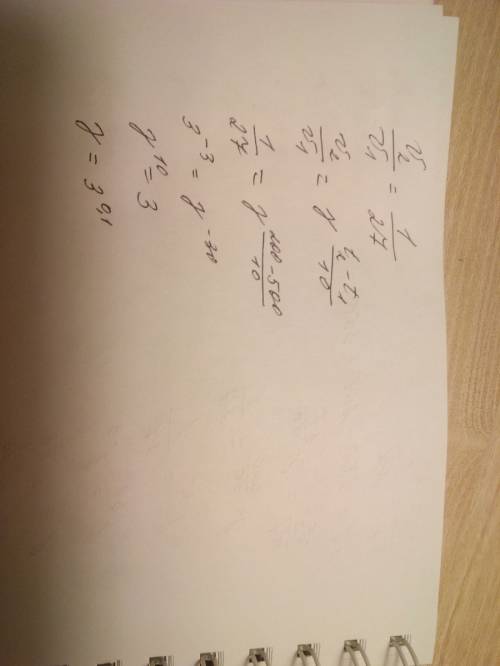 v₂/v₁ = 1/27
v₂/v₁ = γ^((t₂-t₁)/10)
1/27 = γ^((200-500)/10)
3^-3 = γ^-30
γ^10 = 3
γ = 3^0,1